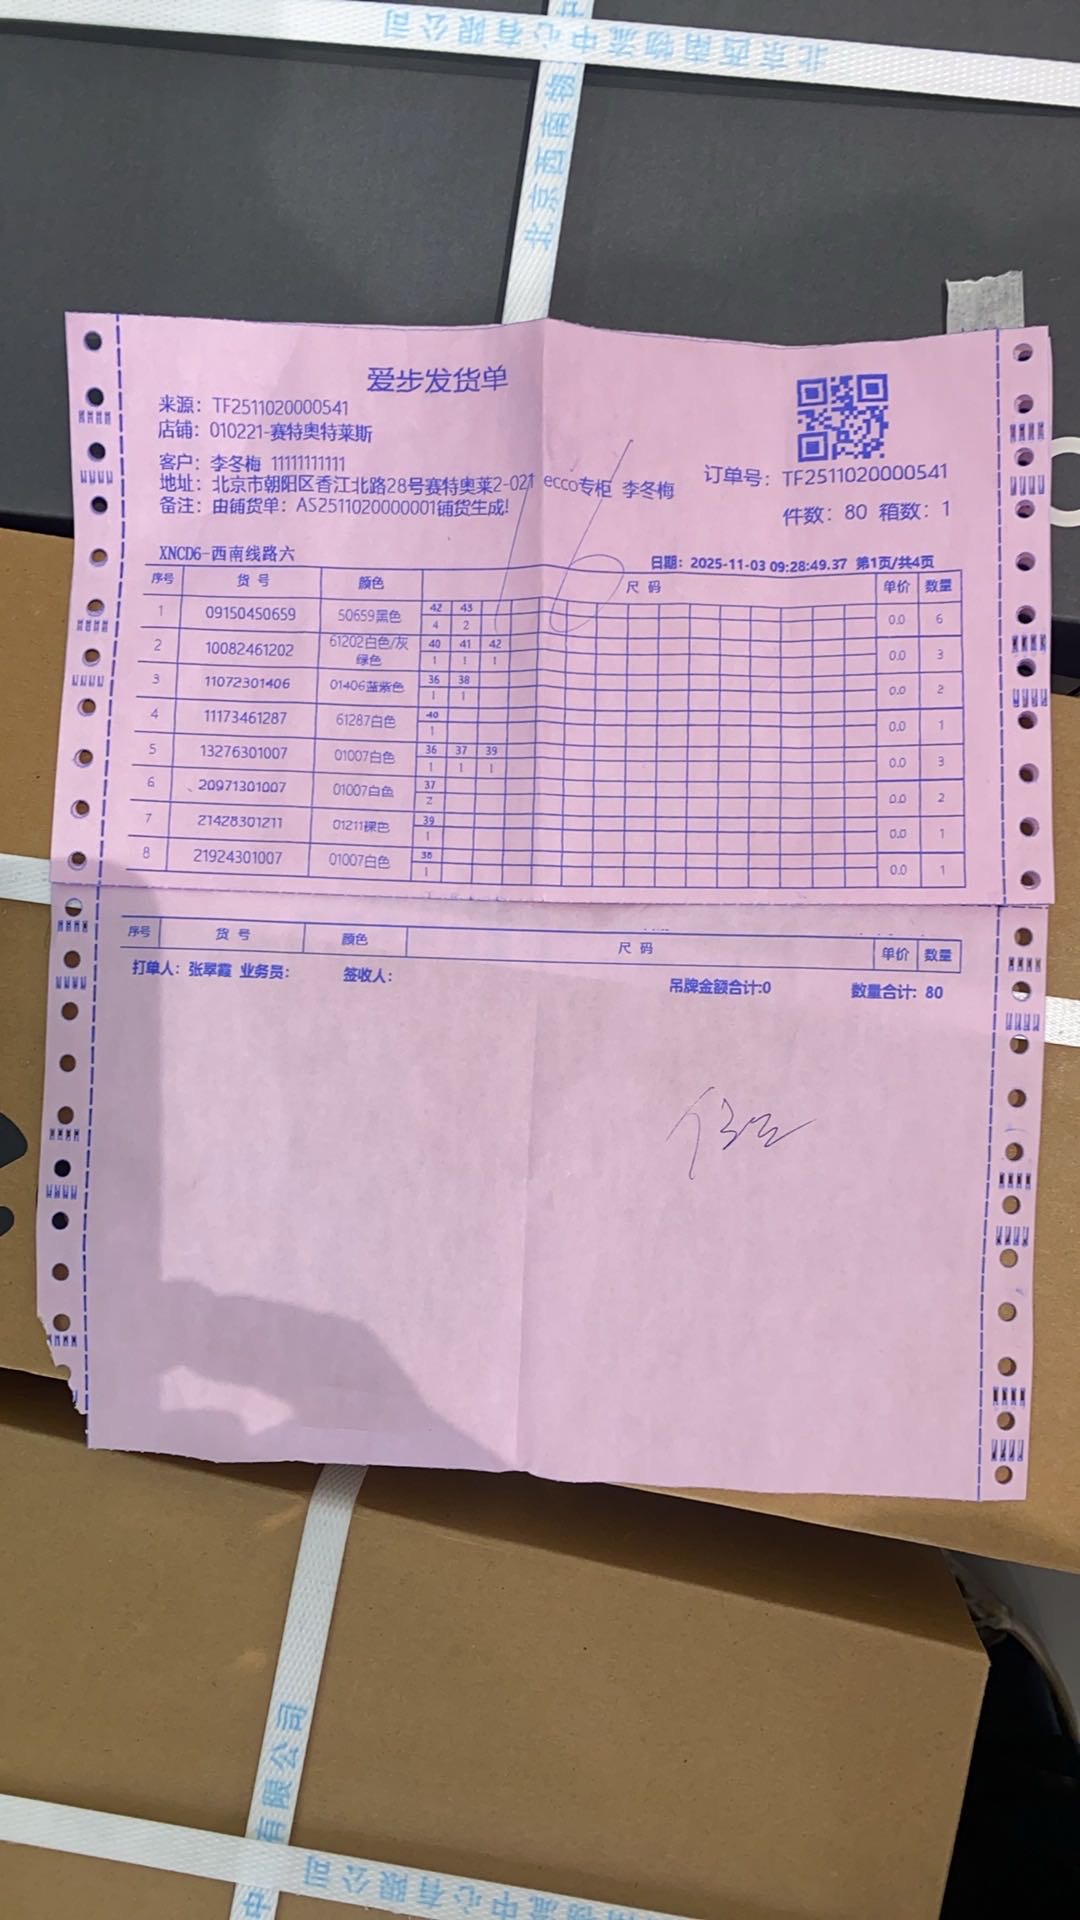 北京西南物流中心有限公司
北京西南物流中
爱步发货单
来源：TF2511020000541
店铺：010221-赛特奥特莱斯
客户：李冬梅 11111111111
地址：北京市朝阳区香江北路28号赛特奥莱2-021 ecco专柜 李冬梅
备注：由铺货单：AS2511020000001铺货生成!
订单号：TF2511020000541
件数：80 箱数：1
16
XNCD6-西南线路六
日期：2025-11-03 09:28:49.37 第1页/共4页
序号 货 号 颜色 尺 码 单价 数量
1 09150450659 50659黑色 42 43 0.0 6
4 2
2 10082461202 61202白色/灰绿色 40 41 42 0.0 3
1 1 1
3 11072301406 01406蓝紫色 36 38 0.0 2
1 1
4 11173461287 61287白色 40 0.0 1
1
5 13276301007 01007白色 36 37 39 0.0 3
1 1 1
6 20971301007 01007白色 37 0.0 2
2
7 21428301211 01211裸色 39 0.0 1
1
8 21924301007 01007白色 38 0.0 1
1
序号 货 号 颜色 尺 码 单价 数量
打单人：张翠霞 业务员： 签收人： 吊牌金额合计:0 数量合计: 80
中 有限公司
流中心有限公司